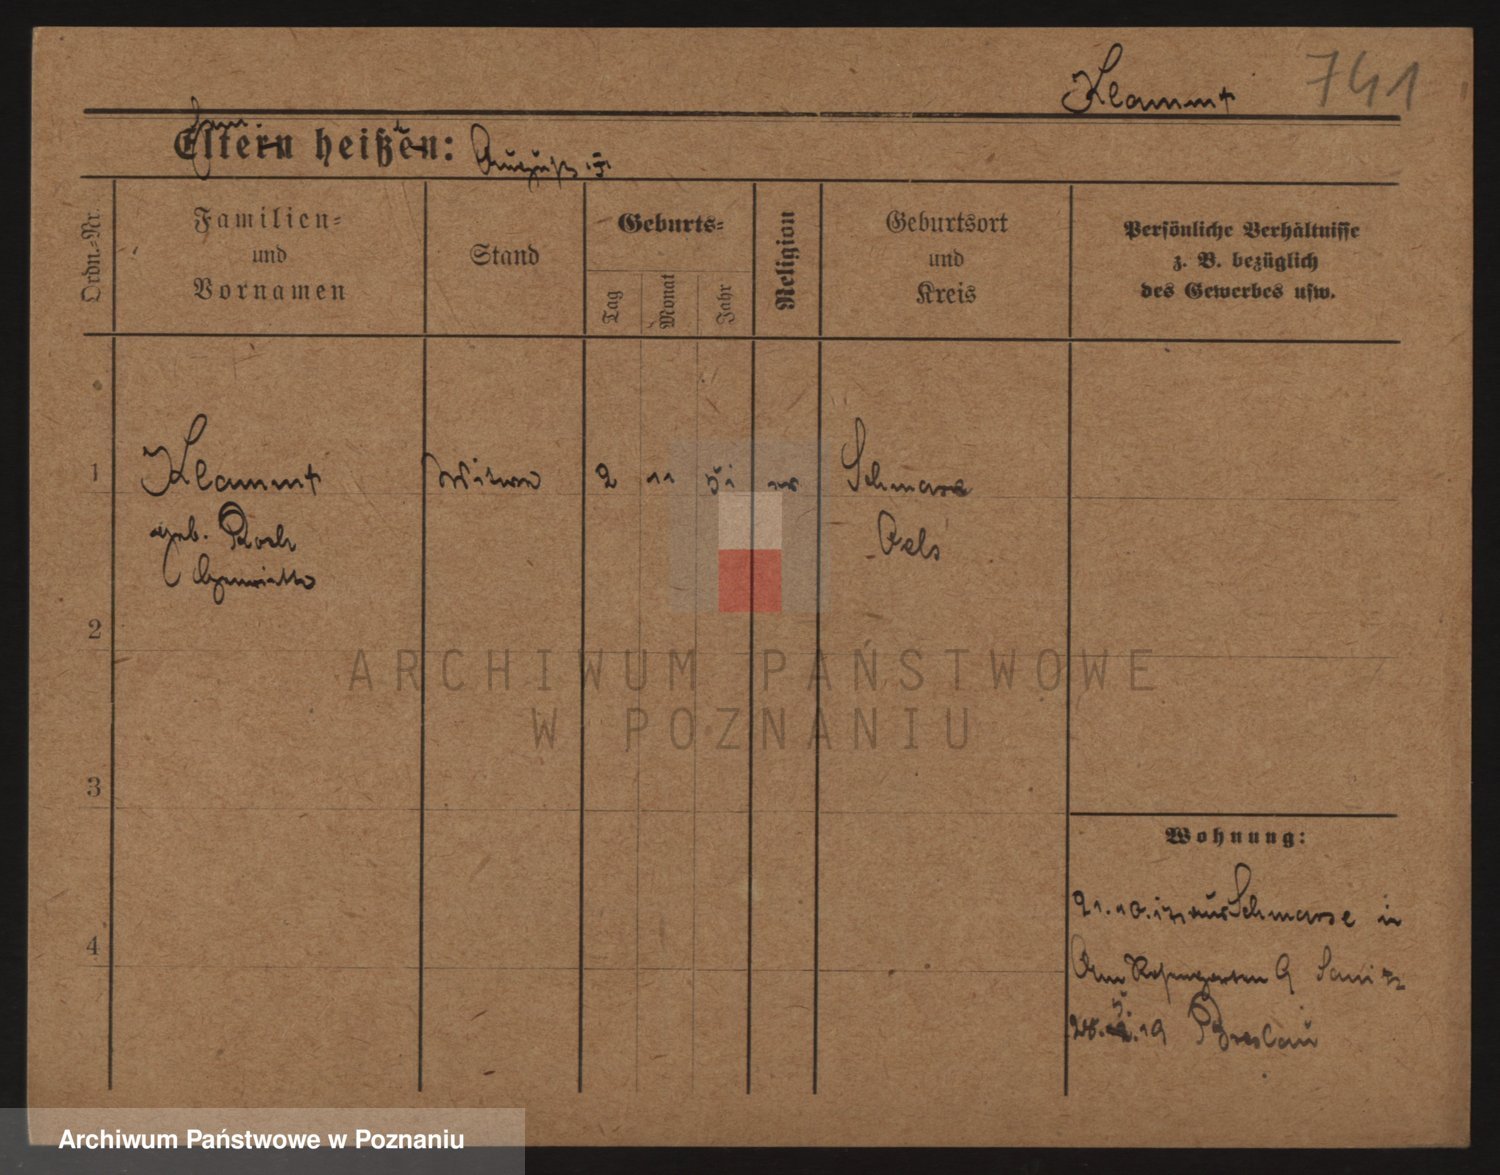 Klammt 741
Eltern heißen: August
Ordn.-Nr.
Familien-
und
Vornamen
Stand
Geburts-
Tag
Monat
Jahr
Religion
Geburtsort
und
Kreis
Persönliche Verhältnisse
z. B. bezüglich
des Gewerbes usw.
1 Klammt Witwe 2 11 51 Schmarse
geb. Oels
Henriette
2
3
4
Wohnung:
21.10.17 aus Schmarse in
Am Rosengarten 9
19 Breslau
ARCHIWUM PAŃSTWOWE
W POZNANIU
Archiwum Państwowe w Poznaniu